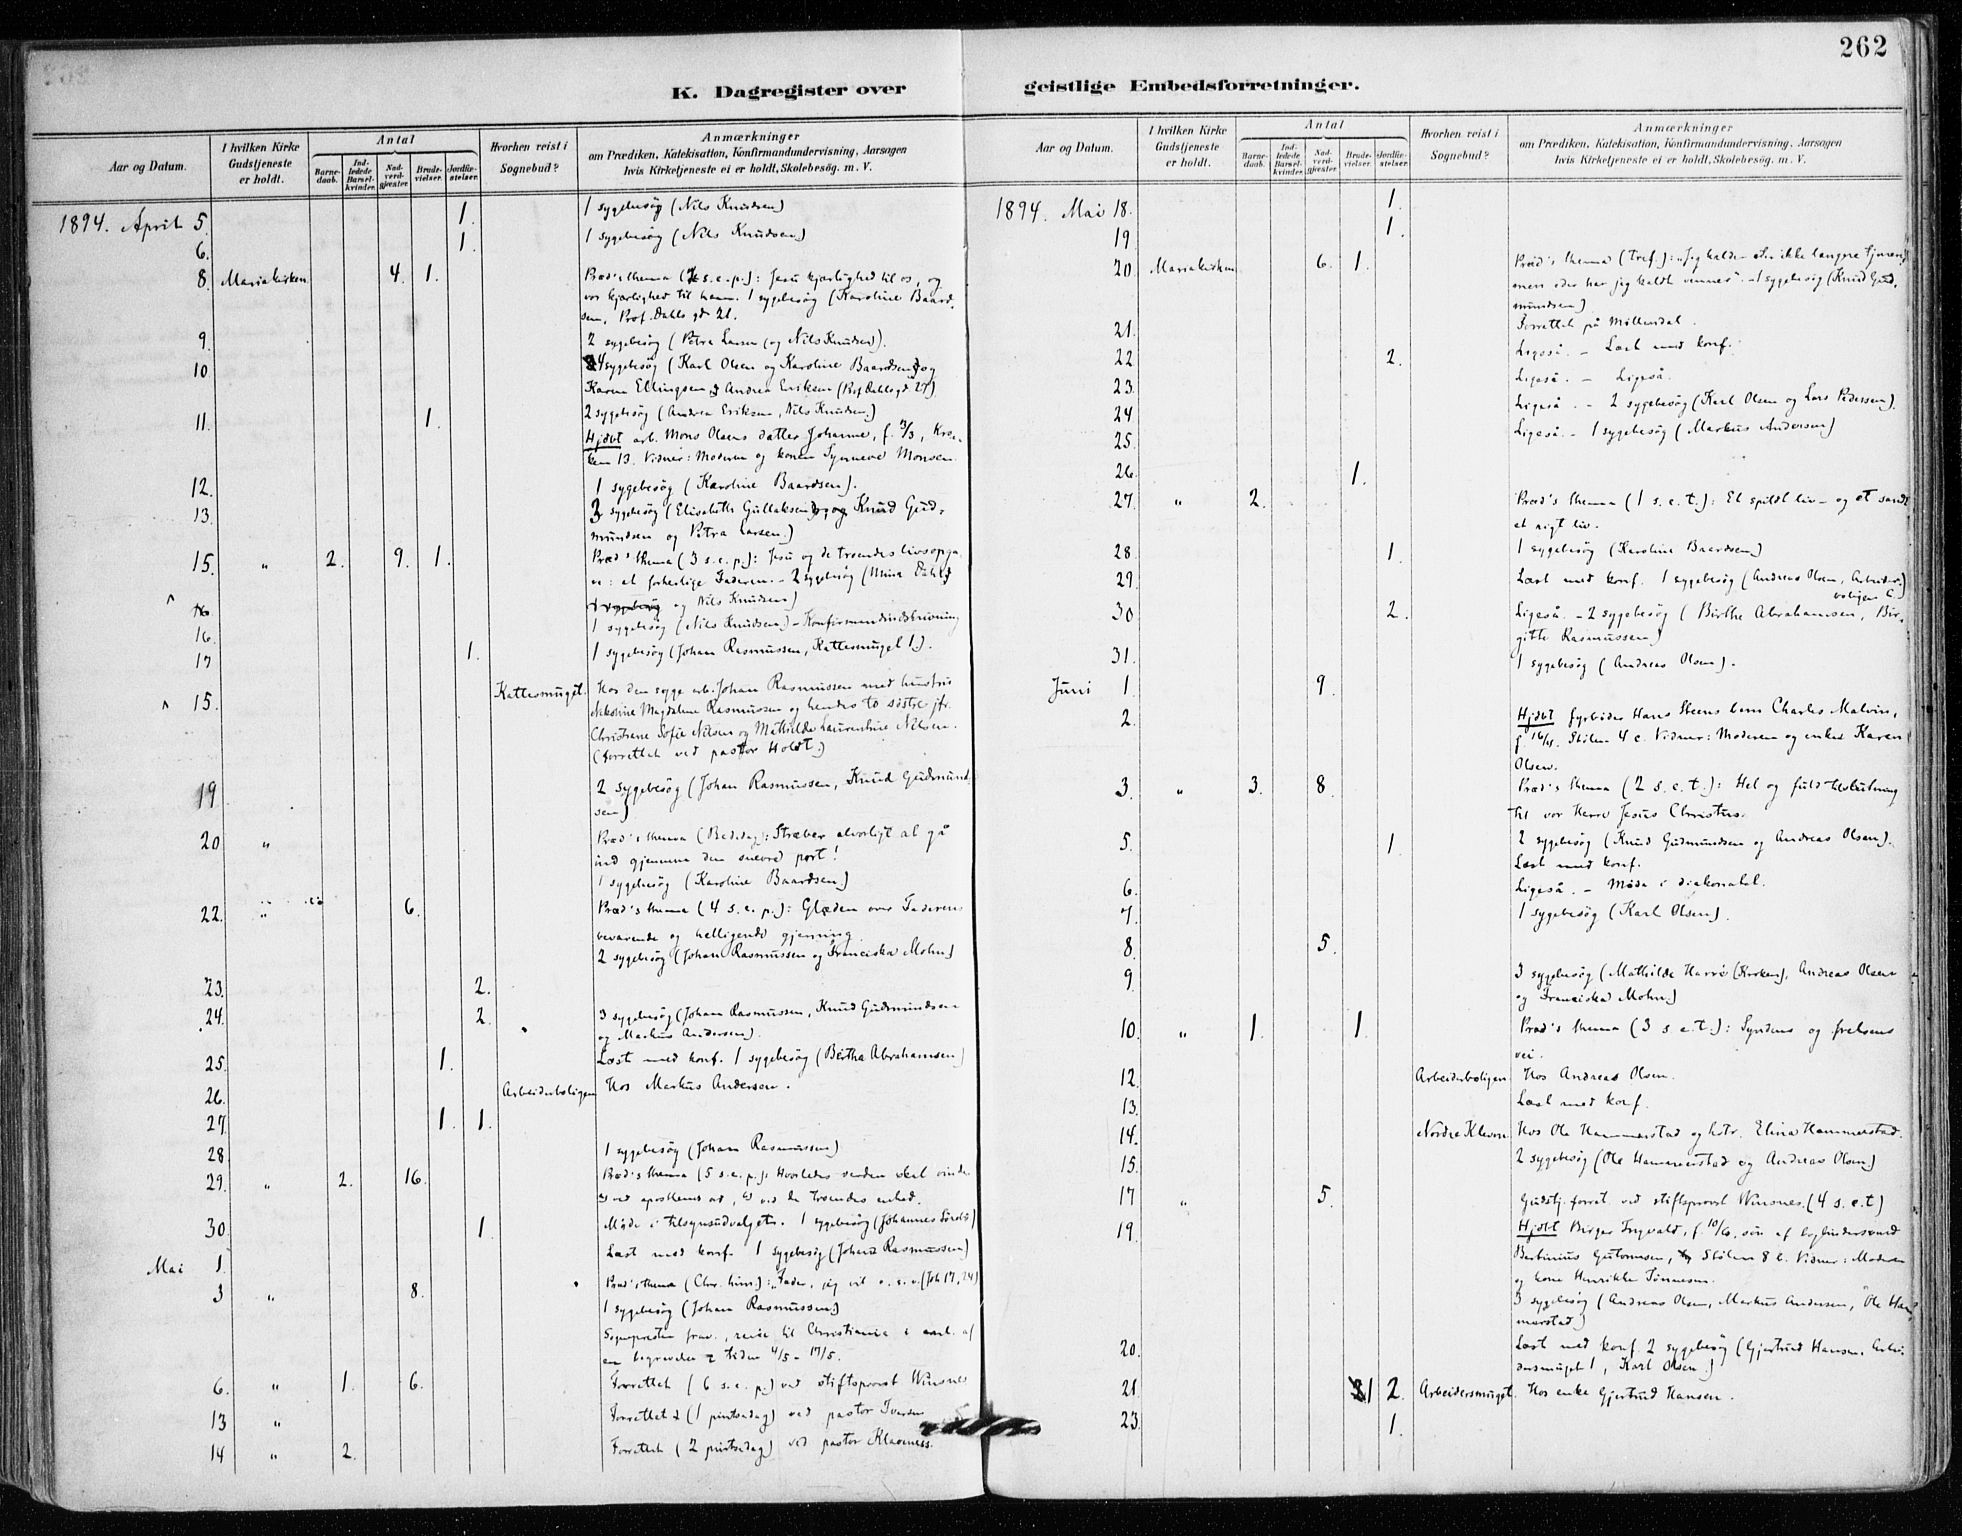 262
K. Dagregister over geistlige Embedsforretninger.
Aar og Datum. I hvilken Kirke Gudstjeneste er holdt. Antal Barnedaab. Indledede Barselkvinder. Nadverdgjester Brudevielser. Jordfæstelser. Hvorhen reist i Sognebud? Anmærkninger om Prædiken, Katekisation, Konfirmandundervisning, Aarsagen hvis Kirketjeneste ei er holdt, Skolebesøg. m. V.
1894. April 5. 1. 1 sygebesøg (Nils Knudsen)
6. 1. 1 sygebesøg (Nils Knudsen)
8. Mariakirken 4. 1. Præd's thema (2 s. e. p.): Jesu kjærlighed til os, og
vor kjærlighed til ham. 1 sygebesøg (Karoline Baard-
sen, Prof. Dahls gd 21.
9. 2 sygebesøg (Petra Larsen (og Nils Knudsen).
10 4 sygebesøg (Karl Olsen og Karoline Baardsen) og
Karen Ellingsen & Andrea Eriksen (Prof. Dahls gd 27).
11. 1. 2 sygebesøg (Andrea Eriksen, Nils Knudsen.)
Hjdbt arb. Mons Olsens datter Johanne, f. 3/3,
13. Vidner: Moderen og konen Synneve Monsen.
12. 1 sygebesøg (Karoline Baardsen).
13. 3 sygebesøg (Elisabeth Gullaksen, og Knud Gud-
mundsen og Petra Larsen.)
15. " 2. 9. 1. Præd's thema (3 s. e. p.): Jesu og de troendes livsopga-
ve: at forherlige Faderen. - 2 sygebesøg (Mina Dahl
og Nils Knudsen)
16. 1 sygebesøg (Nils Knudsen.) - Konfirmandindskrivning
17 1. 1 sygebesøg (Johan Rasmussen, Kattesmuget 1.).
15. Kattesmuget. Hos den syge arb. Johan Rasmussen med hustru
Nikoline Magdalene Rasmussen og hendes to søstre jfr.
Christiane Sofie Nilsen og Mathilde Laurentine Nilsen.
(Forrettet ved pastor Holdt.)
19 2 sygebesøg (Johan Rasmussen, Knud Gudmund-
sen)
20 " Præd's thema (Bededag): Stræber alvorligt at gå
ind gjennem den snevre port!
1 sygebesøg (Karoline Baardsen)
22. " 6. Præd's thema (4 s. e. p.): Glæden over Faderens
bevarende og helligende gjerning.
2 sygebesøg (Johan Rasmussen og Franciska Mohn)
23. 2.
24. 2. 3 sygebesøg (Johan Rasmussen, Knud Gudmundsen
og Markus Andersen).
25. 1. Læst med konf. 1 sygebesøg (Bertha Abrahamsen)
26. Arbeiderboligen Hos Markus Andersen.
27. 1. 1.
28 1 sygebesøg (Johan Rasmussen)
29. " 2. 16. Præd's thema (5 s. e. p.): Hvorledes verden skal vindes
ved apostlenes ord, ved de troendes enhed.
30. 1. Møde i tilsynsudvalget. 1 sygebesøg (Johannes
Mai 1. Læst med konf. 1 sygebesøg (Johan Rasmussen)
3 " 8. Præd's thema (Chr. him.): "Fader, jeg vil o. s. v. (Joh 17, 24)
1 sygebesøg (Johan Rasmussen)
Sognepresten frav., reise til Christiania i anl. af
en begravelse i tiden 4/5 - 17/5.
6. " 1. 6. Forrettet (6 s. e. p.) ved stiftsprovst Winsnes
13 " Forrettet (1 pintsedag) ved pastor Iversen
14 " 2. Forrettet (2 pintsedag) ved pastor Klaveness.
Aar og Datum. I hvilken Kirke Gudstjeneste er holdt. Antal Barnedaab. Indledede Barselkvinder. Nadverdgjester Brudevielser. Jordfæstelser. Hvorhen reist i Sognebud? Anmærkninger om Prædiken, Katekisation, Konfirmandundervisning, Aarsagen hvis Kirketjeneste ei er holdt, Skolebesøg. m. V.
1894. Mai 18. 1.
19. 1.
20 Mariakirken 6. 1. Præd's thema (Tref.): "Jeg kalder eder ikke længre tjenere,
men eder har jeg kaldt venner". - 1 sygebesøg (Knud Gud-
mundsen)
21. Forrettet på Møllendal.
22 2. Ligeså. - Læst med konf.
23. Ligeså. - Ligeså.
24 Ligeså. - 2 sygebesøg (Karl Olsen og Lars Pedersen).
25. Ligeså. - 1 sygebesøg (Markus Andersen)
26. 1.
27. " 2. Præd's thema (1 s. e. t.): Et spildt liv - og et sandt
et rigt liv.
28. 1. 1 sygebesøg (Karoline Baardsen)
29. Læst med konf. 1 sygebesøg (Andreas Olsen, Arbeider-
boligen C.)
30 2. Ligeså. - 2 sygebesøg (Birthe Abrahamsen, Bir-
gitte Rasmussen)
31. 1 sygebesøg (Andreas Olsen).
Juni 1. 9.
2. Hjdbt fyrbøder Hans Steens barn Charles Malvin,
Stølen 4 c. Vidner: Moderen og enken Karen
Olsen.
3. " 3. 8. Præd's thema (2 s. e. t.): Hel og fuld tilslutning
til vor Herre Jesus Christus.
5. 1. 2 sygebesøg (Knud Gudmundsen og Andreas Olsen).
Læst med konf.
6. Ligeså. - Møde i diakonatet.
7. 1 sygebesøg (Karl Olsen).
8. 5.
9 3 sygebesøg (Mathilde Harre (Kroken), Andreas Olsen
og Franciska Mohn)
10. " 1. 1. Præd's thema (3 s e. t.): Syndens og frelsens
vei.
12. Arbeiderboligen Hos Andreas Olsen.
13. Læst med konf.
14. Nordre Kleven Hos Ole Hammerstad og hstr. Elina Hammerstad.
15. 2 sygebesøg (Ole Hammerstad og Andreas Olsen)
17 " 5. Gudstj. forret. ved stiftsprovst Winsnes. (4 s. e. t)
19. Hjdbt Birger Ingvald, f. 10/6, søn af bogbindersvend
Bertinius Guttormsen, Stølen 8 b. Vidner: Moderen
og kone Henrikke Tønnesen.
3 sygebesøg (Andreas Olsen, Markus Andersen, Ole Ham-
merstad)
20. Læst med konf. 2 sygebesøg (Gjertrud Hansen, Arbei-
dersmuget 1, Karl Olsen.)
21. 1 2. Arbeidersmuget. Hos enke Gjertrud Hansen.
23. 1.